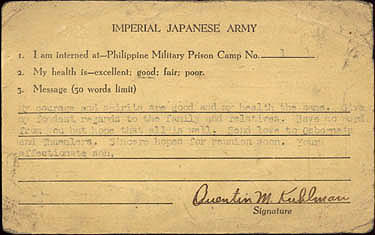 IMPERIAL JAPANESE ARMY
1. I am interned at—Philippine Military Prison Camp No. 1
2. My health is—excellent; good; fair; poor.
3. Message (50 words limit)
My courage and spirits are good and my health the same. Give
my fondest regards to the family and relatives. Have no word
from you but hope that all is well. Send love to
and Sincere hopes for reunion soon. Your
affectionate son,
Quentin M. Kuhlman
Signature